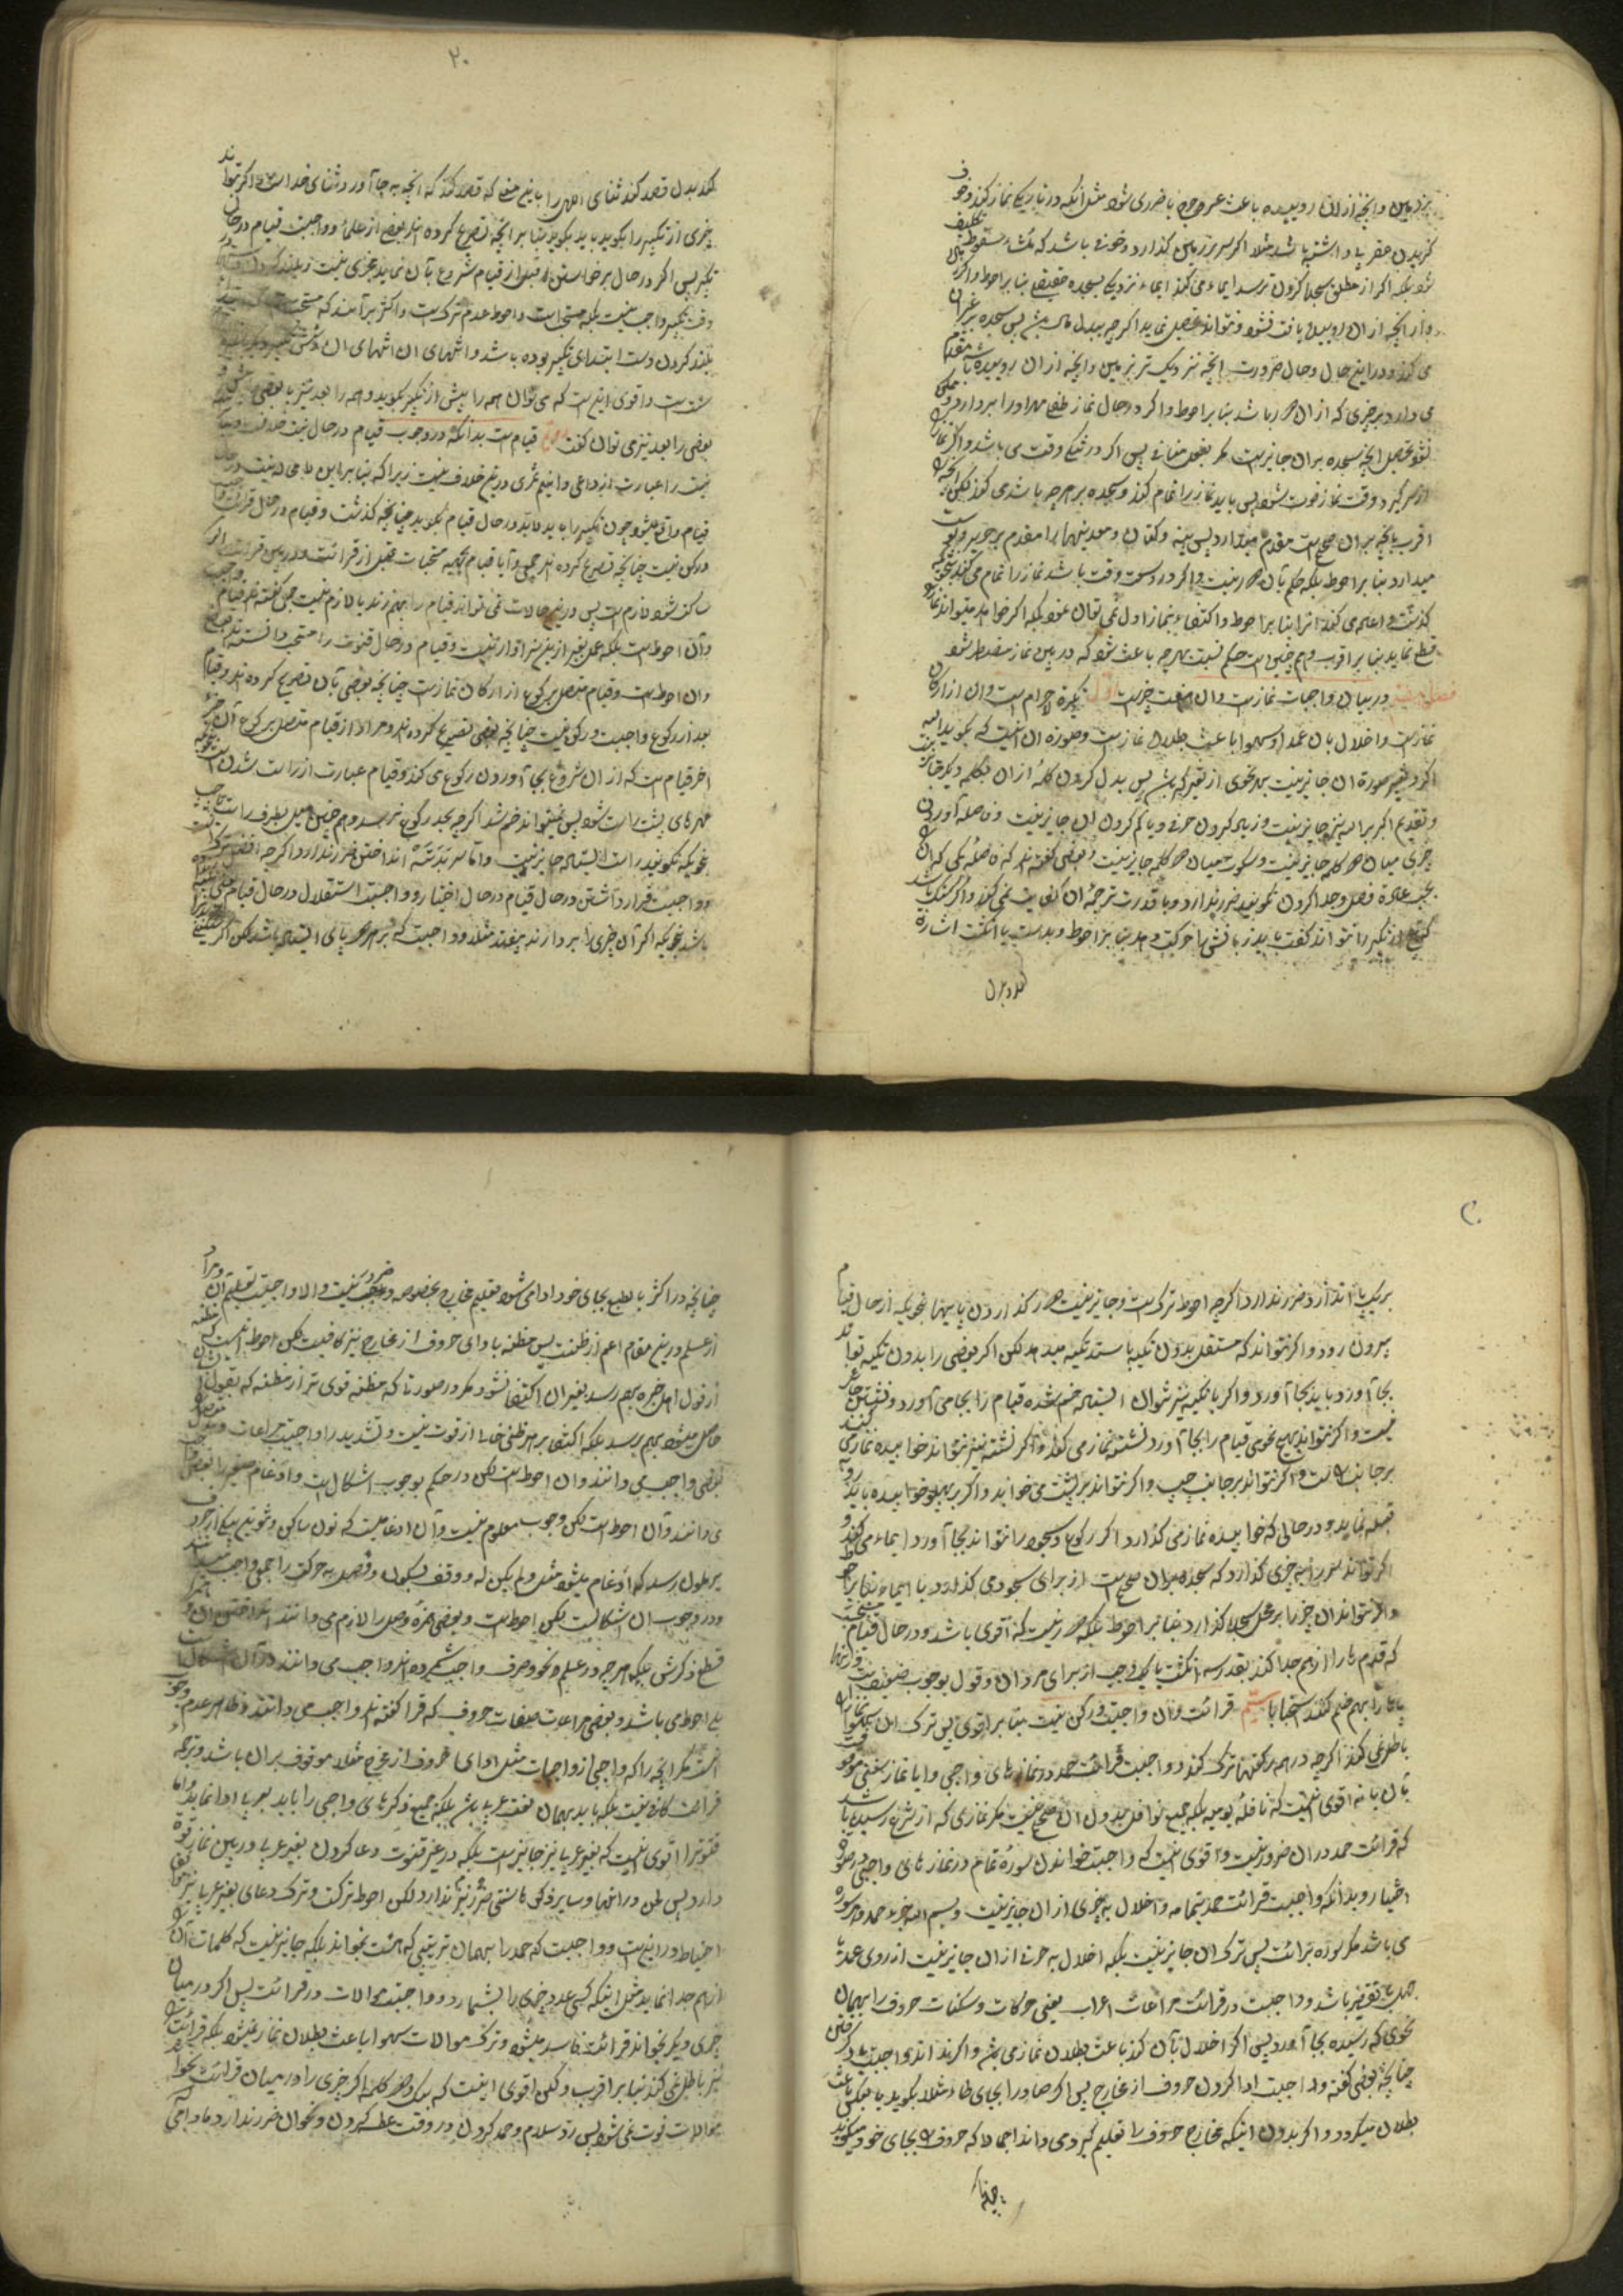 بزمین و آنچه از ان روییده باعث عسر و حرج یا ضرری شود مثل آنکه در تاریکی نماز کند و خوف
گزیدن عقرب یا داشته باشد مثلا اگر سر بر زمین گذارد و خوفی باشد که منشاء سقوط تکلیف
شود بلکه اگر از مطلق سجده کردن ترسد ایماء می کند ایماء نزدیک بسجده حقیقی بنا بر احوط و اگر
و از آنچه از ان روییده یافت نشود و نتواند تحصیل نماید اگر چه ببدل مال پس سجده بر غیر ان
می کند و در این حال و حال ضرورت آنچه نزدیک تر بزمین و آنچه از ان روییده باشد مقدم
می دارد بر چیزی که از ان دور باشد بنا بر احوط و اگر در حال نماز طفلی مهر او را بردارد و ممکن
نشود تحصیل آنچه سجده بر ان جایز است مگر بفعل منافی پس اگر در تنگی وقت می باشد و اگر نماز را
از سر گیرد وقت نماز فوت شود پس باید نماز را تمام کند و سجده بر هر چه باشد می کند لیکن آنچه
اقرب بآنچه بر ان صحیح است مقدم میدارد پس پنبه و کتان و معدنیها را مقدم بر چرم و پوست
میدارد بنا بر احوط بلکه حکم بآن دور نیست و اگر در وسعت وقت باشد نماز را تمام می کند بنحوی که
گذشت و اعاده می کند انرا بنا بر احوط و اکتفاء بنماز اول نمی توان نمود بلکه اگر خواهد میتواند نماز را
قطع نماید بنا بر اقرب و هم چنین است حکم نسبت بهر چه باعث شود که در بین نماز مضطر شود
فصل هفتم در بیان واجبات نماز است و ان هفت چیز است اول تکبیرة الاحرام است و ان از ارکان
نماز است و اخلال بان عمدا و سهوا باعث بطلان نماز است و صورة ان اینست که بگوید الله
اکبر و تغییر صورة ان جایز نیست بهر نحوی از تغییر که باشد پس بدل کردن کلمهٔ از ان بکلمه دیگر جایز نیست
و تقدیم اکبر بر الله نیز جایز نیست و زیاد کردن حرفی و یا کم کردن ان جایز نیست و فاصله آوردن
چیزی میان دو کلمه جایز نیست و سکوت میان دو کلمه جایز نیست و بعضی گفته اند که فاصله کمی که ان را
بحسب عادة فصل و جدا کردن نگویند ضرر ندارد و با قدرت ترجمهٔ ان کفایت نمی کند و اگر گنگ باشد
که هیچ از تکبیر را نتواند گفت باید زبانش را حرکت دهد بنا بر احوط و بدست یا انگشت اشاره
کند و بدل
۲۰
کند بدل قصد کند ثنای الهی را باین معنی که قصد کند که آنچه بجا آورد ثنای خدا است و اگر تواند
چیزی از تکبیر را بگوید باید بگوید بنا بر آنچه تصریح کرده اند بعضی از علما و واجبست قیام در حال
تکبیر پس اگر در حال برخواستن قبل از قیام شروع بآن نماید مجزی نیست و بلند کردن دستها در
وقت تکبیر واجب نیست بلکه مستحب است و احوط عدم ترک است و اکثر بر آنند که مستحب است که
بلند کردن دست ابتدای تکبیر بوده باشد و انتهای ان انتهای ان
سنت است و اقوی اینست که می توان همه را پیش از تکبیر بگوید و همه را بعد نیز یا بعضی را پیش و
بعضی را بعد نیز می توان گفت دویم قیام است بدانکه در وجوب قیام در حال نیت خلاف
نیت را عبارت از داعی دانیم ثمری در این خلاف نیست زیرا که بنا بر این
قیام واقع میشود چون تکبیر را باید در حال قیام بگوید چنانچه گذشت و قیام در حال قرائت واجب
و رکن نیست چنانچه تصریح کرده اند جمعی و آیا قیام بجهة مستحبات قبل از قرائت و در بین قرائت اگر
ساکت شود لازم است پس در این حالات نمی تواند قیام را بهم زند یا لازم نیست جمعی گفته اند قیام واجب
و آن احوط است بلکه عمل بغیر از این سزاوار نیست و قیام در حال قنوت را مستحب دانسته اند جمعی
و ان احوط است و قیام متصل برکوع از ارکان نماز است چنانچه بعضی بآن تصریح کرده اند و قیام
بعد از رکوع واجبست و رکن نیست چنانچه بعضی تصریح کرده اند و مراد از قیام متصل برکوع آن جزء
اخر قیام است که از ان شروع بجا آوردن رکوع می کند و قیام عبارت از راست شدن است بنحوی که
مهرهای پشت راست شود پس نمیتواند خم شد اگر چه بحد رکوع نرسد و هم چنین میل بطرف راست یا چپ
بنحوی که نگویند راست ایستاده جایز نیست و اما سر بزیر انداختن ضرر ندارد اگر چه افضل ترک است
و واجبست قرار داشتن در حال قیام در حال اختیار و واجبست استقلال در حال قیام
باشد بنحوی که اگر آن چیزی را بردارند بیفتد مثلا و واجبست که بر هر دو پای ایستاده باشد لکن اگر سنگینی
۲۰
بر یک پا اندازد ضرر ندارد اگر چه احوط ترک است و جایز نیست دور گذاردن پاییها بنحوی که از حال قیام
بیرون رود و اگر نتواند که مستقل بدون تکیه بایستد تکیه میدهد لکن اگر بعضی را بدون تکیه تواند
بجا آورد باید بجا آورد و اگر با تکیه نیز نتوان ایستاد خم شده قیام را بجا می آورد و نشستن جایز
نیست و اگر نتواند بهیچ نحوی قیام را بجا آورد نشسته نماز می کند و اگر نشسته نیز نتواند خوابیده نماز می کنند
بر جانب راست و اگر نتواند بر جانب چپ و اگر نتواند بر پشت می خوابد و اگر بر پهلو خوابیده باید رو
قبله نماید و در حالی که خوابیده نماز می گذارد اگر رکوع و سجود را نتواند بجا آورد ایماء می کند و
اگر تواند سر را بچیزی گذارد که سجده بران صحیح است از برای سجود می گذارد با ایماء بنا بر احوط
و اگر نتواند ان چیز را بر محل سجده گذارد بنا بر احوط بلکه دور نیست که اقوی باشد و در حال قیام مستحب است
که قدم ها را از هم جدا کند بقدر سه انگشت یا یک وجب از برای مردان و قول بوجوب ضعیف است و زنها
پاها را بهم ضم کنند استحبابا سیّم قرائت و ان واجبست و رکن نیست بنا بر اقوی پس ترک ان سهوا نماز را
باطل نمی کند اگر چه در همه رکعتها ترک کند و واجبست قرائت حمد در نمازهای واجبی و ایا نماز سنتی موقوف
بآن یا نه اقوی اینست که نافلهٔ یومیه بلکه جمیع نوافل بدون ان صحیح نیست مگر نمازی که از شرع رسیده باشد
که قرائت حمد در ان ضرور نیست و اقوی اینست که واجبست خواندن سورهٔ تمام در نمازهای واجبی در حال
اختیار و بدانکه واجبست قرائت حمد بتمامه و اخلال بچیزی از ان جایز نیست و بسم الله جزء حمد و هر سوره
می باشد مگر سورهٔ برائت پس ترک ان جایز نیست بلکه اخلال به حرفی از ان جایز نیست از روی عمد یا
جهل بتقصیر باشد و واجبست در قرائت مراعات اعراب یعنی حرکات و سکنات حروف را بهمان
نحوی که رسیده بجا آورد پس اگر اخلال بآن کند باعث بطلان نماز می شود و اگر نداند واجبست یاد گرفتن
چنانچه بعضی گفته و واجبست ادا کردن حروف از مخارج پس اگر ضاد را بجای ظاء مثلا بگوید یا بعکس باعث
بطلان میگردد و اگر بدون اینکه مخارج حروف را تعلیم گیرد می داند اجمالا که حروف را بجای خود میگوید
چنانچه
چنانچه در اکثر بالطبع بجای خود ادا می شود تعلیم مخارج بخصوصه ضرور نیست و الا واجبست تعلیم آن و مراد
از علم در این مقام اعم از ظنست پس مظنه باداى حروف از مخارج نیز کافیست لکن احوط اینست که بمظنه
از قول اهل خبره بهم رسد بغیر ان اکتفا نشود مگر در صورتی که مظنه قوی تر از مظنه که بقول ایشان
حاصل میشود بهم رسد بلکه اکتفا بهر ظنی خالی از قوت نیست و تشدید را واجبست مراعات و مدّ متصل را
بعضی واجب می دانند و ان احوط است لکن در حکم بوجوب اشکال است و ادغام صغیر را بعضی واجب
می دانند و آن احوط است لکن وجوب معلوم نیست و آن ادغامیست که نون ساکن و تنوین بیکی از حروف
یرملون برسد که ادغام میشود مثل و لم یکن له و وقف بسکون و وصل به حرکت را جمعی واجب میدانند
و در وجوب ان اشکالست لکن احوط است و بعضی همزهٔ وصل را لازم می دانند انداختن ان و همزه
قطع ذکرش بلکه هر چه در علم نحو و صرف واجب شمرده اند واجب می دانند و در آن اشکال است
بلی احوط می باشد و بعضی مراعات صفات حروف که قرا گفته اند واجب می دانند و ظاهر عدم وجوب
است مگر آنچه را که واجبی از واجبات مثل ادای حروف از مخرج مثلا موقوف بر ان باشد و ترجمه
قرائت کافی نیست بلکه باید بهمان لغت عربی باشد بلکه جمیع ذکرهای واجبی را باید بعربی ادا نماید و اما
قنوت را اقوی اینست که بغیر عربی نیز جایز است بلکه در غیر قنوت دعا کردن بغیر عربی در بین نماز قوة
دارد پس لحن در انها و سایر ذکرهای سنتی ضرر نیز ندارد لکن احوط ترکست و ترک دعای بغیر عربی نیز موافق
احتیاط در این است و واجبست که حمد را بهمان ترتیبی که هست بخواند بلکه جایز نیست که کلمات آن را
از هم جدا نماید مثل اینکه کسی عدد چیزی را بشمارد و واجبست موالات در قرائت پس اگر در میان
چیزی دیگر بخواند قرائت فاسد میشود و ترک موالات سهوا باعث بطلان نماز نمیشود بلکه قرائت را
نیز باطل نمی کند بنا بر اقرب و لکن اقوی اینست که بیک و دو کلمه اگر چیزی را در میان قرائت بخواند
موالات فوت نمی شود پس ردّ سلام و حمد کردن در وقت عطسه کردن و نحو ان ضرر ندارد مادامی